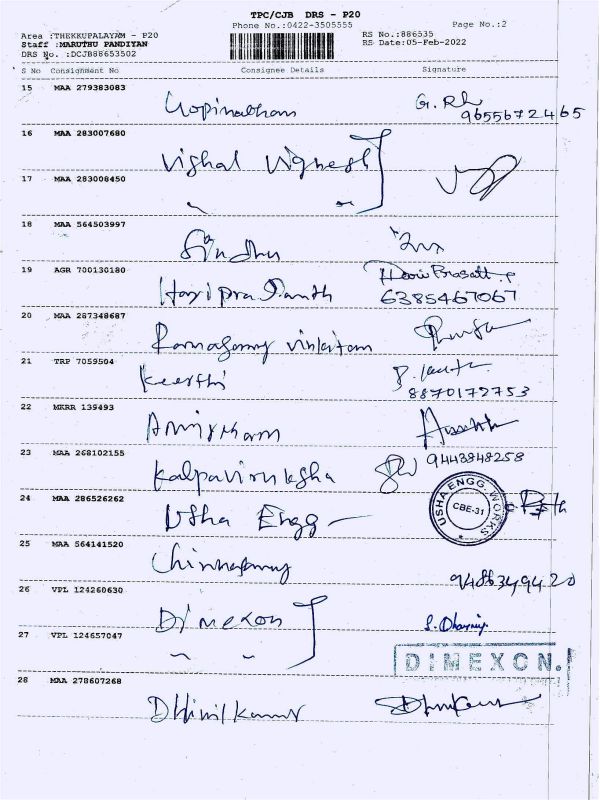 TPC/CJB DRS - P20
Phone No.:0422-3505555
Page No.:2
Area :THEKKUPALAYAM - P20
Staff :MARUTHU PANDIYAN
DRS No. :DCJB88653502
RS No.:886535
RS Date:05-Feb-2022
S No Consignment No Consignee Details Signature
15 MAA 279383083 Gopinatham G. 9655672465
16 MAA 283007680 Vishal Vignesh
17 MAA 283008450
18 MAA 564503997 Sindhu
19 AGR 700130180 Hariprasanth Hari Prasath.P
6385467067
20 MAA 287348687 Ramasamy
21 TRP 7059504 Keerthi
8870172753
22 MKRR 139493
23 MAA 268102155 Kalpaviruksha 9443848258
24 MAA 286526262 Usha Engg
USHA ENGG. WORKS
CBE-31
25 MAA 564141520 Chinnasamy 9486349420
26 VPL 124260630 Dimexon
27 VPL 124657047
DIMEXON.
28 MAA 278607268